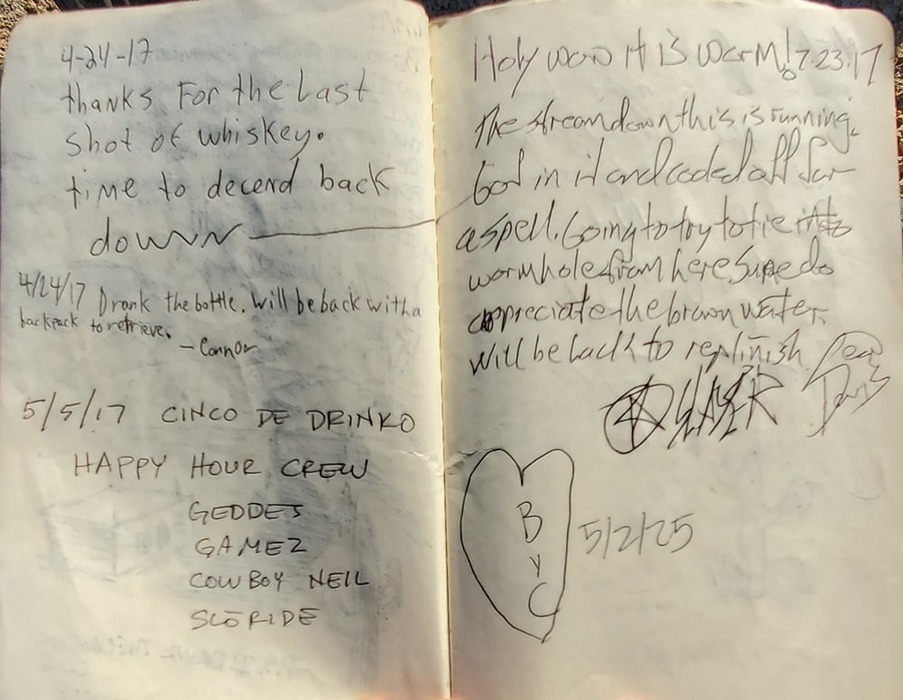 4-24-17
thanks For the Last
shot of whiskey.
time to decend back
down
4/24/17 Drank the bottle. Will be back with a
backpack to retrieve.
- Connor
5/5/17 CINCO DE DRINKO
HAPPY HOUR CREW
GEDDES
GAMEZ
COWBOY NEIL
SCORIDE
Holy wow it is warm! 7.23.17
The stream down this is running.
Got in it and cooled off for
a spell. Going to try to tie into
wormhole from here. Supe do
appreciate the brown water.
Will be back to replinish.
Davis
B
Y
C
5/2/25